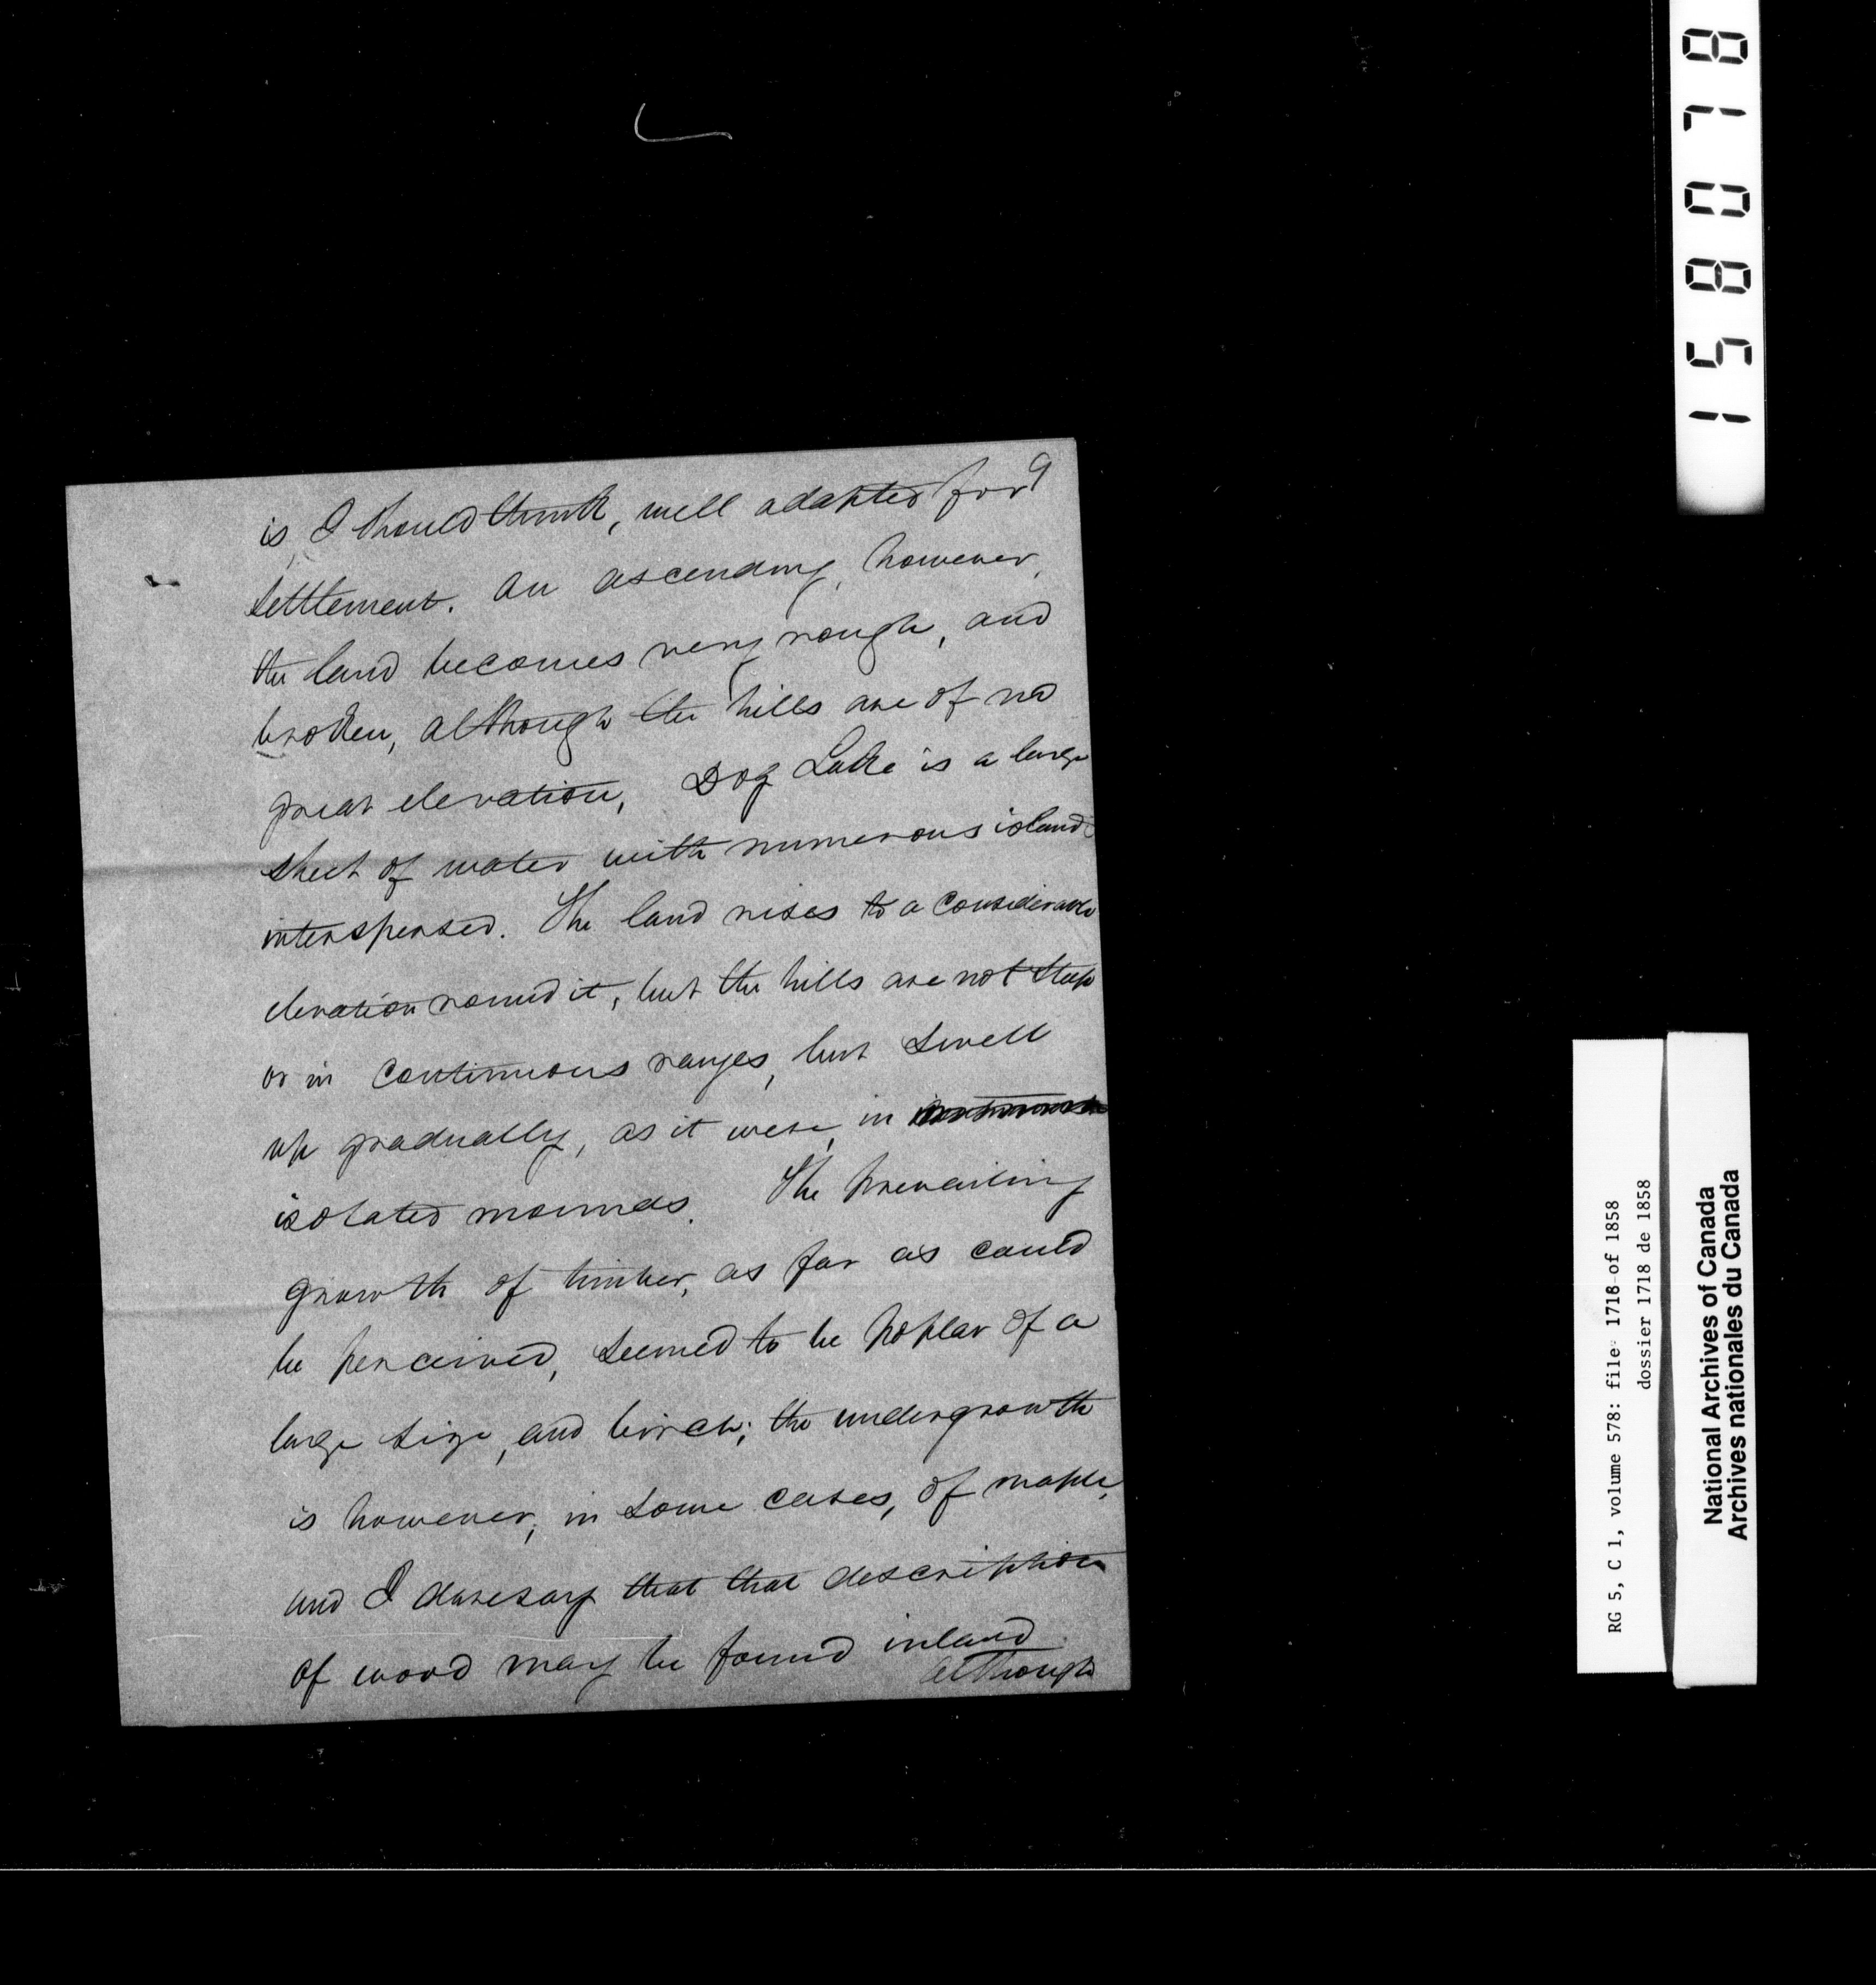 9
is I should think, well adapted for
settlement. On ascending, however,
the land becomes very rough, and
broken, although the hills are of no
great elevation. Dog Lake is a large
sheet of water with numerous islands
interspersed. The land rises to a considerable
elevation round it, but the hills are not steep
or in continuous ranges, but swell
up gradually, as it were, in
isolated mounds. The prevailing
growth of timber, as far as could
be perceived, seemed to be poplar of a
large size, and birch; the undergrowth
is however, in some cases, of maple,
and I daresay that that description
of wood may be found inland
although
158078
RG 5, C 1, volume 578: file 1718 of 1858
dossier 1718 de 1858
National Archives of Canada
Archives nationales du Canada